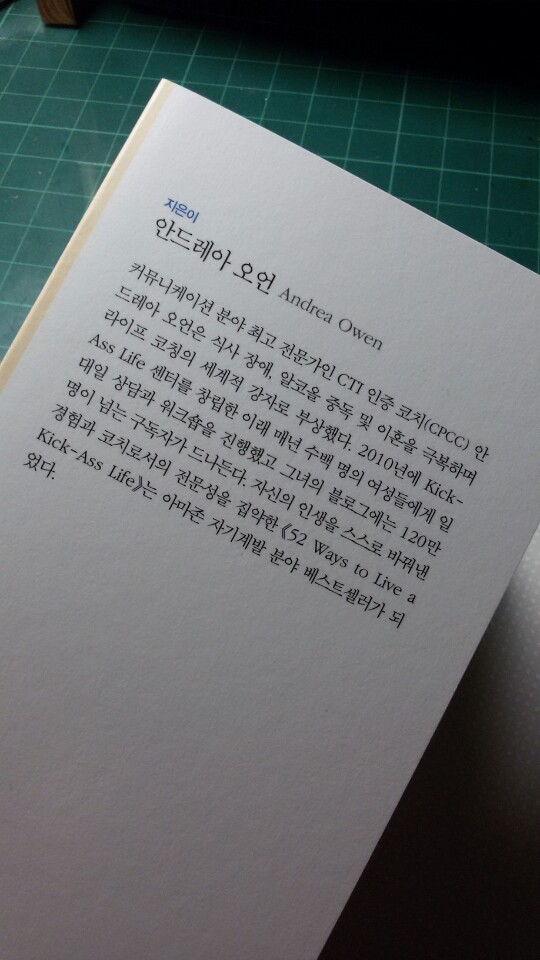 지은이
안드레아 오언 Andrea Owen
커뮤니케이션 분야 최고 전문가인 CTI 인증 코치(CPCC) 안
드레아 오언은 식사 장애, 알코올 중독 및 이혼을 극복하며
라이프 코칭의 세계적 강자로 부상했다. 2010년에 Kick-
Ass Life 센터를 창립한 이래 매년 수백 명의 여성들에게 일
대일 상담과 워크숍을 진행했고 그녀의 블로그에는 120만
명이 넘는 구독자가 드나든다. 자신의 인생을 스스로 바꿔낸
경험과 코치로서의 전문성을 집약한 《52 Ways to Live a
Kick-Ass Life》는 아마존 자기계발 분야 베스트셀러가 되
었다.